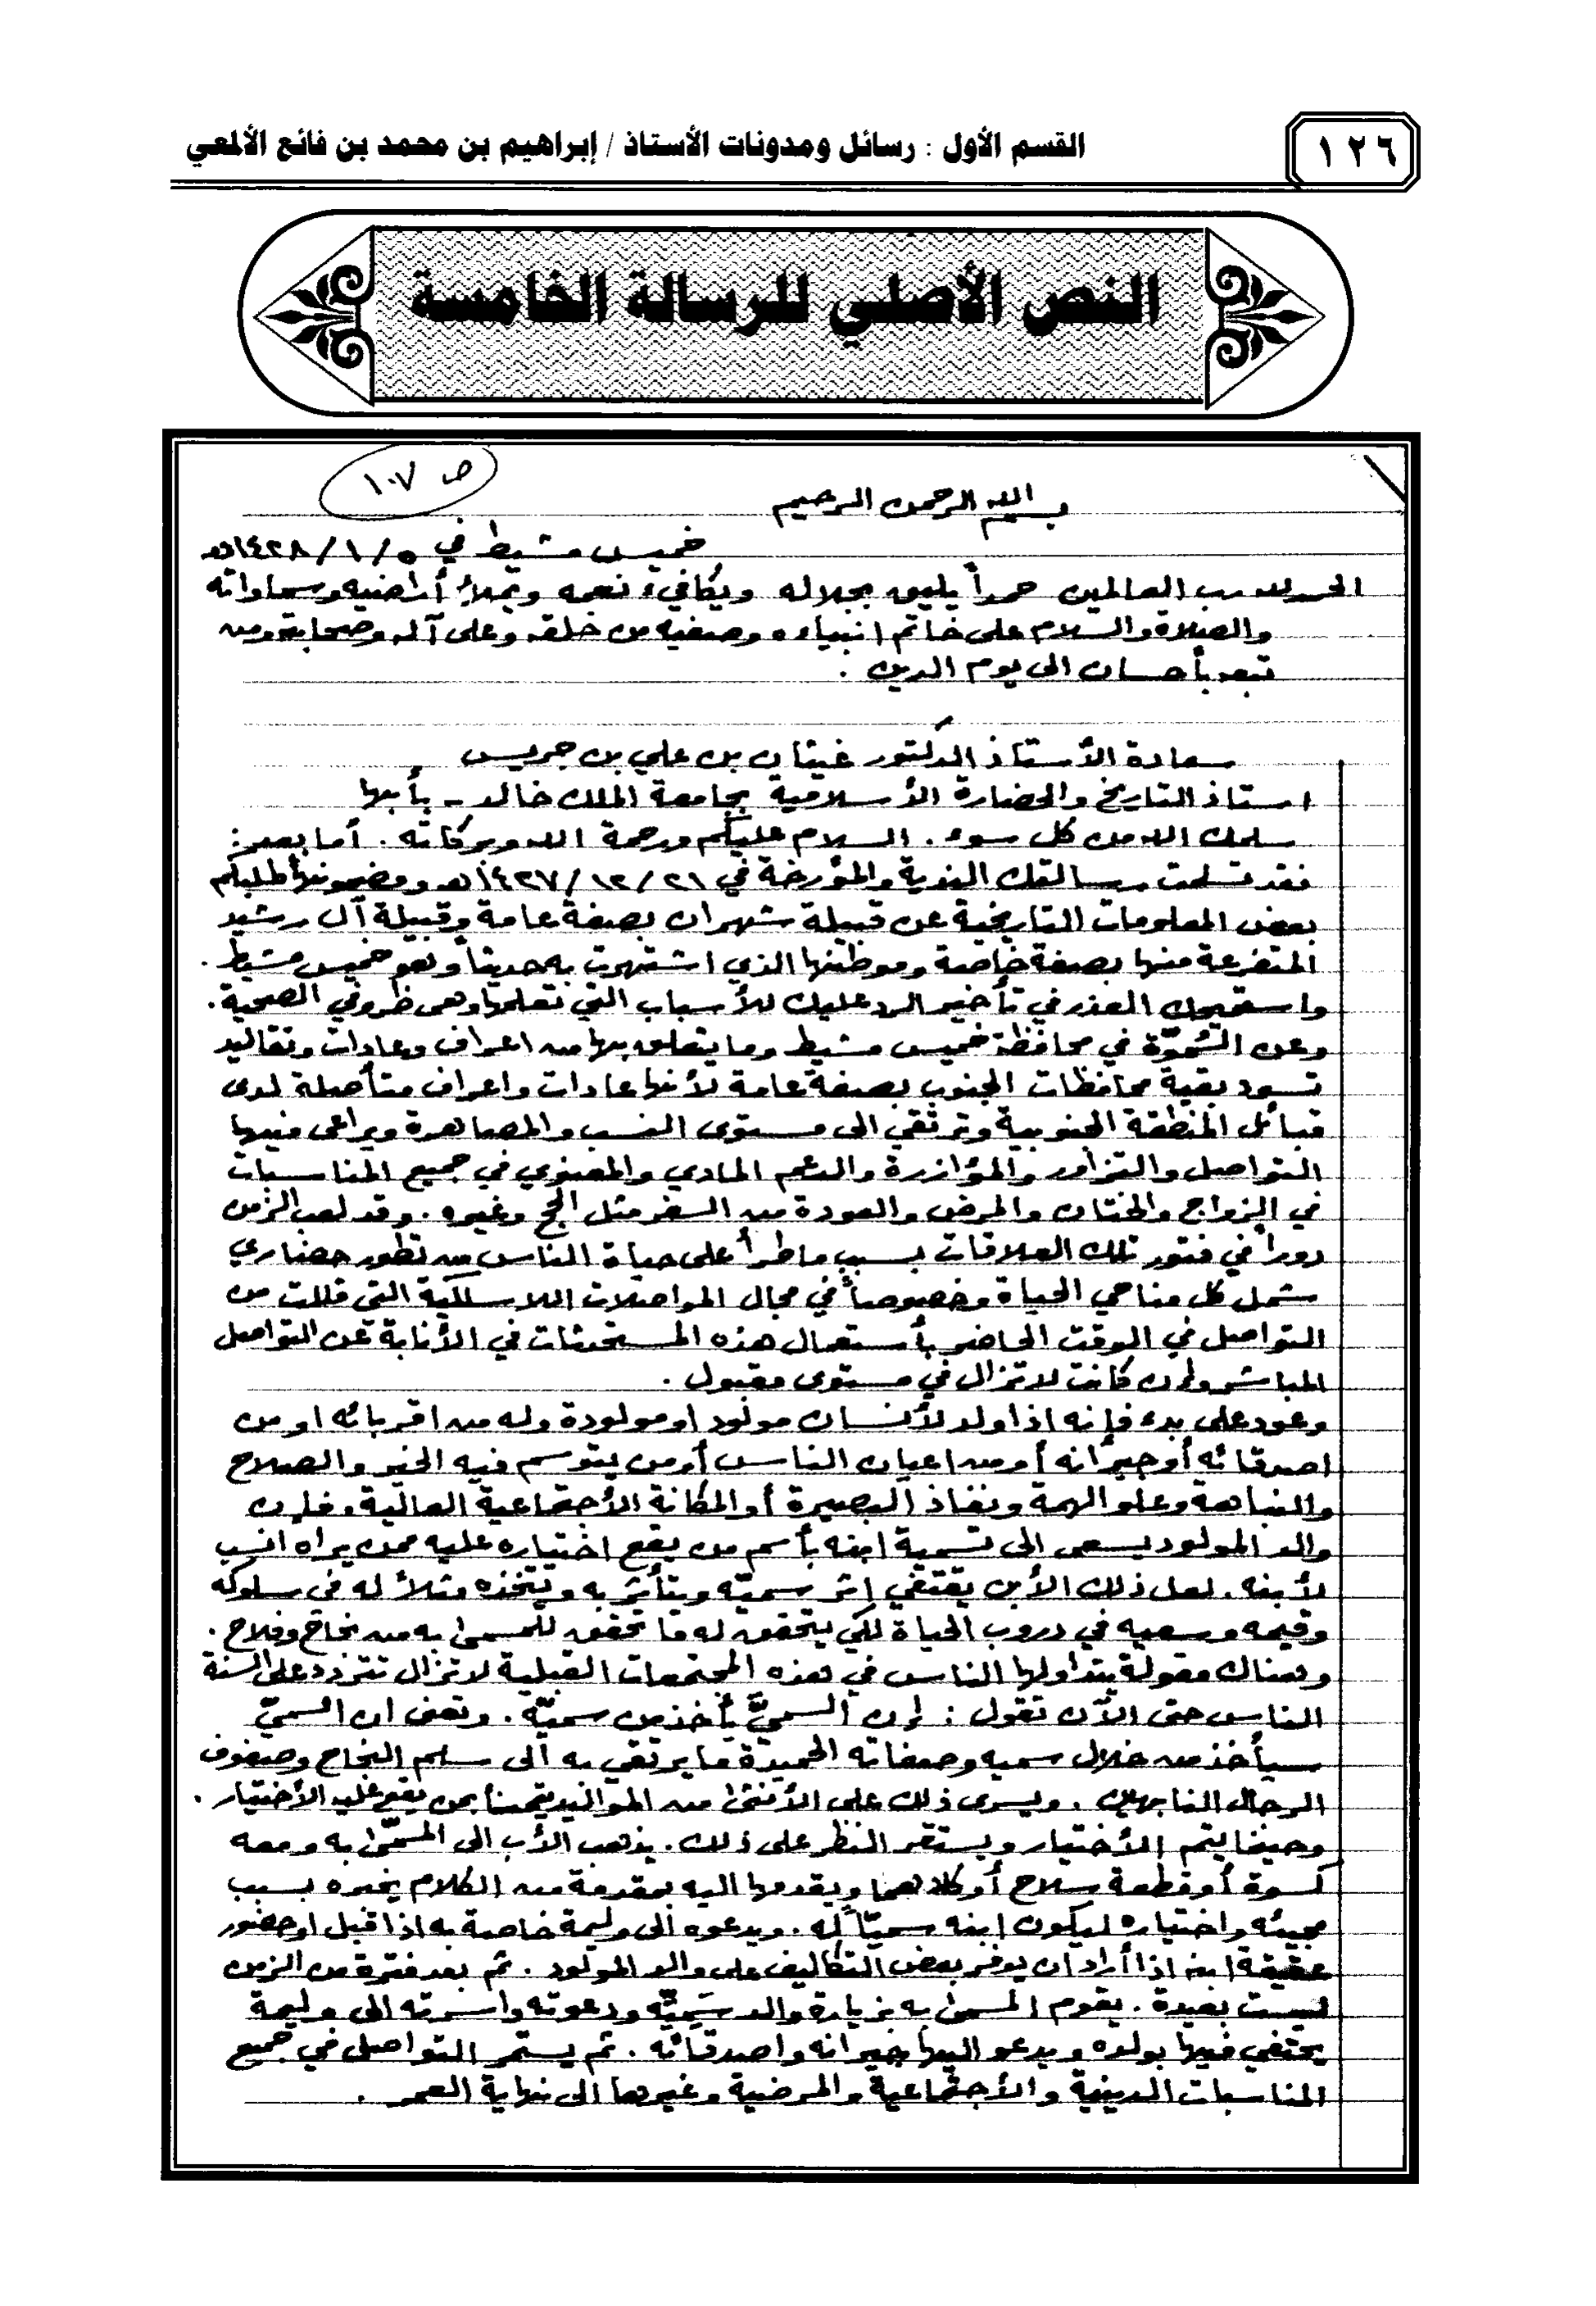 ١٢٦
القسم الأول : رسائل ومدونات الأستاذ / إبراهيم بن محمد بن فائع الألمعي
النص الأصلي للرسالة الخامسة
ص ١٠٧
بسم الله الرحمن الرحيم
خميس مشيط في ٥ / ١ / ١٤٢٨هـ
الحمد لله رب العالمين حمداً يليق بجلاله ويكافيء نعمه ويملأ أراضيه وسماواته
والصلاة والسلام على خاتم انبياءه وصفيه من خلقه وعلى آله وصحابته ومن
تبعه بأحسان الى يوم الدين .
سعادة الأستاذ الدكتور غيثان بن علي بن جريس
استاذ التاريخ والحضارة الأسلامية بجامعة الملك خالد - بأبها
سلمك الله من كل سوء . السلام عليكم ورحمة الله وبركاته . أما بعد :
فقد تسلمت رسالتك الندية والمؤرخة في ٢١ / ١٢ / ١٤٢٧هـ ومضمونها طلبكم
بعض المعلومات التاريخية عن قبيلة شهران بصفة عامة وقبيلة آل رشيد
المتفرعة منها بصفة خاصة وموطنها الذي اشتهرت به حديثاً وهو خميس مشيط .
واستميحك العذر في تأخير الرد عليك للأسباب التي تعلمها وهي ظروفي الصحية .
وعن السُّموَّة في محافظة خميس مشيط وما يتعلق بها من اعراف وعادات وتقاليد
تسود بقية محافظات الجنوب بصفة عامة لأنها عادات واعراف متأصلة لدى
قبائل المنطقة الجنوبية وترتقي الى مستوى النسب والمصاهرة ويراعى فيها
التواصل والتزاور والمؤازرة والدعم المادي والمعنوي في جميع المناسبات
في الزواج والختان والمرض والعودة من السفر مثل الحج وغيره . وقد لعب الزمن
دوراً في فتور تلك العلاقات بسبب ما طرأ على حياة الناس من تطور حضاري
شمل كل مناحي الحياة وخصوصاً في مجال المواصلات اللاسلكية التي قللت من
التواصل في الوقت الحاضر بأستعمال هذه المستحدثات في الأنابة عن التواصل
المباشر وإن كانت لا تزال في مستوى مقبول .
وعود على بدء فإنه اذا ولد لأنسان مولود او مولودة وله من اقربائه او من
اصدقائه أو جيرانه أو من اعيان الناس أو من يتوسم فيه الخير والصلاح
والنباهة وعلو الهمة ونفاذ البصيرة أو المكانة الأجتماعية العالية . فإن
والد المولود يسعى الى تسمية ابنه بأسم من يقع اختياره عليه ممن يراه انسب
لأبنه . لعل ذلك الأبن يقتفي اثر سميّه ويتأثر به ويتخذه مثلاً له في سلوكه
وقيمه وسعيه في دروب الحياة لكي يتحقق له ما تحقق للمسمى به من نجاح وفلاح .
وهناك مقولة يتداولها الناس في هذه المجتمعات القبلية لا تزال تتردد على السنة
الناس حتى الآن تقول : إن السميَّ يأخذ من سميّه . وتعنى ان السميّ
سيأخذ من خلال سميه وصفاته الحميدة ما يرتقي به الى سلم النجاح وصفوف
الرجال النابهين . ويسرى ذلك على الأنثى من المواليد تيمناً بمن يقع عليه الأختيار .
وحينما يتم الأختيار ويستقر النظر على ذلك . يذهب الأب الى المسمّى به ومعه
كسوة أو قطعة سلاح أو كلاهما ويقدمها اليه بمقدمة من الكلام يخبره بسبب
مجيئه واختياره ليكون ابنه سميّاً له . ويدعوه الى وليمة خاصة به اذا قبل او حضور
عقيقة ابنه اذا أراد ان يوفر بعض التكاليف على والد المولود . ثم بعد فترة من الزمن
ليست بعيدة . يقوم المسمى به بزيارة والد سَمِيّه ودعوته واسرته الى وليمة
يحتفي فيها بولده ويدعو اليها جيرانه واصدقائه . ثم يستمر التواصل في جميع
المناسبات الدينية والأجتماعية والمرضية وغيرها الى نهاية العمر .